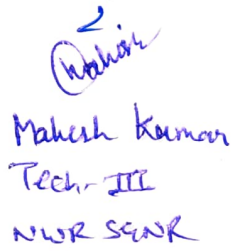 2
Mahesh Kumar
Tech.- III
NWR SGNR